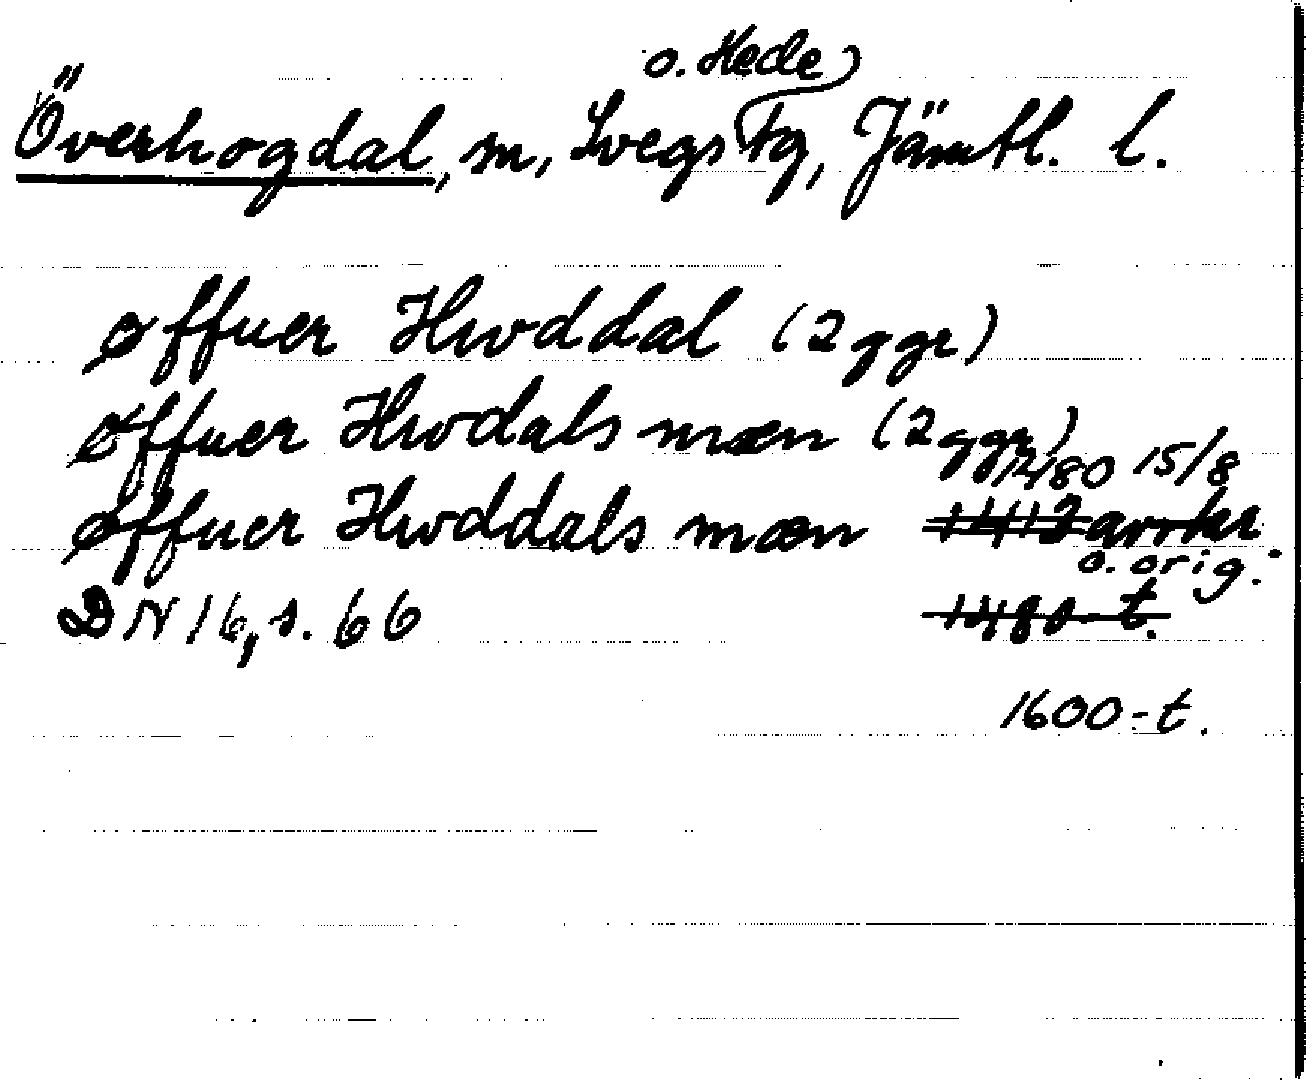 Överhogdal, sn, Svegs o. Hede tg, Jämtl. l.
øffuer Hwddal (2 ggr)
øffuer Hwdals mæn (2 ggr)
1480 15/8
øffuer Hwddals mæn 1412 avskr.
o. orig.
DN 16, s. 66 1480-t.
1600-t.